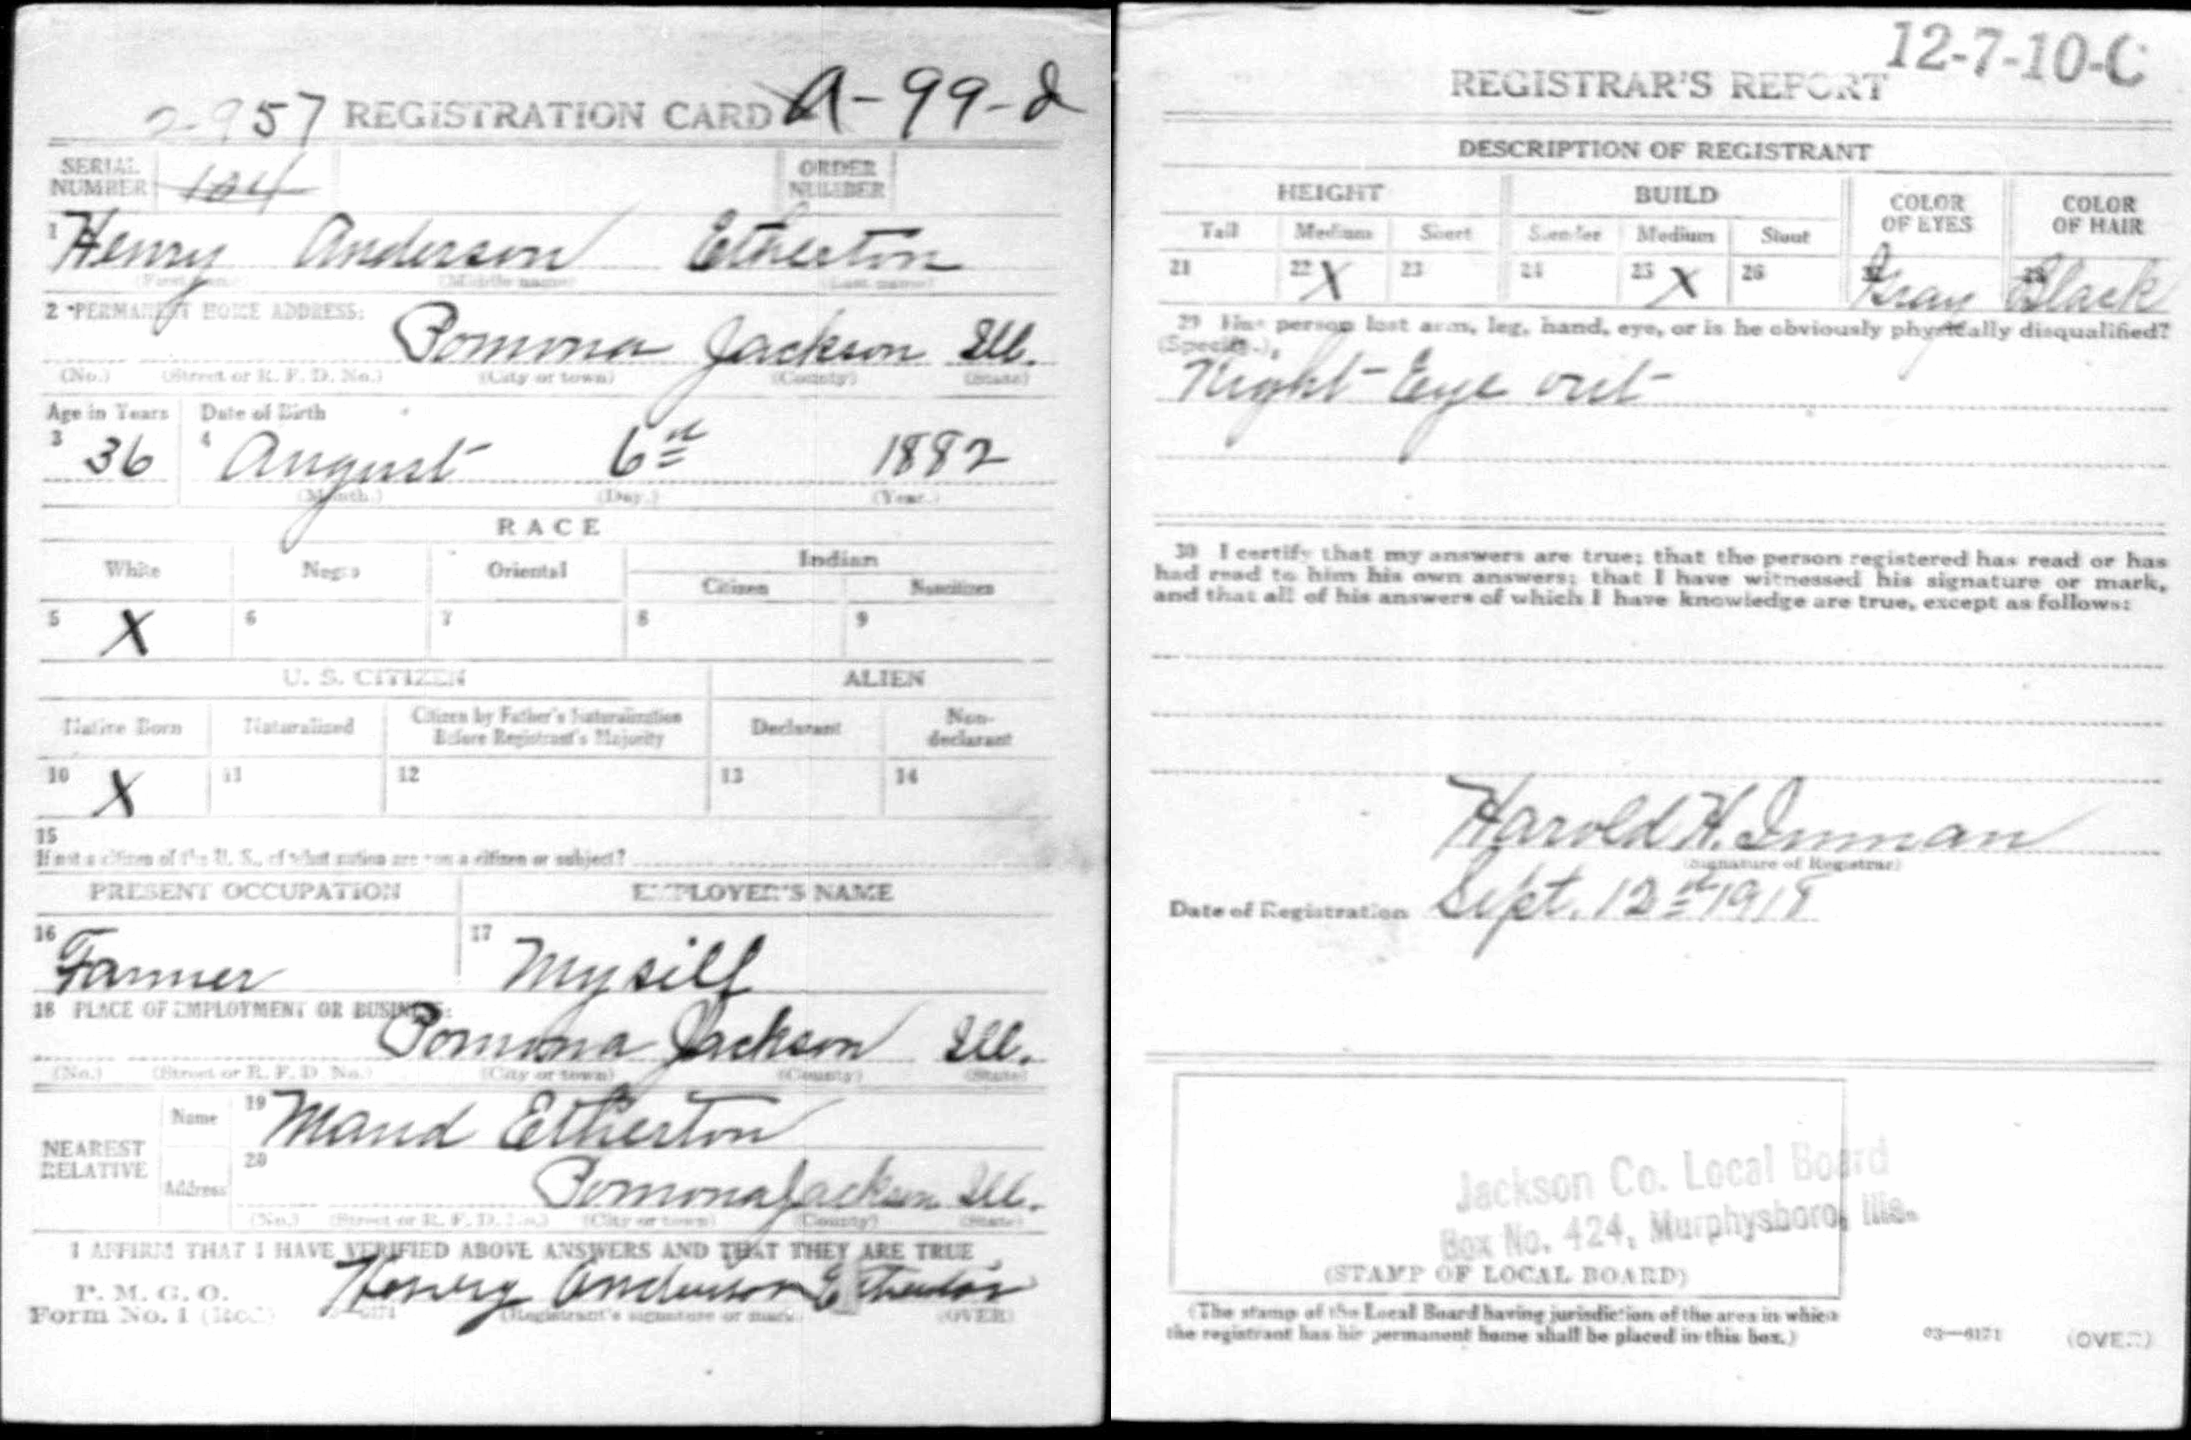 2-957 REGISTRATION CARD A-99-d
SERIAL NUMBER 104 ORDER NUMBER
1 Henry Anderson Etherton
(First name) (Middle name) (Last name)
2 PERMANENT HOME ADDRESS:
Pomona Jackson Ill.
(No.) (Street or R. F. D. No.) (City or town) (County) (State)
Age in Years Date of Birth
3 36 4 August 6th 1882
(Month.) (Day.) (Year.)
RACE
White Negro Oriental Indian
Citizen Noncitizen
5 X 6 7 8 9
U. S. CITIZEN ALIEN
Native Born Naturalized Citizen by Father's Naturalization Before Registrant's Majority Declarant Non-declarant
10 X 11 12 13 14
15
If not a citizen of the U. S., of what nation are you a citizen or subject?
PRESENT OCCUPATION EMPLOYER'S NAME
16 Farmer 17 Mysilf
18 PLACE OF EMPLOYMENT OR BUSINESS:
Pomona Jackson Ill.
(No.) (Street or R. F. D. No.) (City or town) (County) (State)
NEAREST RELATIVE
Name 19 Maud Etherton
Address 20 Pomona Jackson Ill.
(No.) (Street or R. F. D. No.) (City or town) (County) (State)
I AFFIRM THAT I HAVE VERIFIED ABOVE ANSWERS AND THAT THEY ARE TRUE
P. M. G. O.
Form No. 1 (Red) Henry Anderson Etherton
(Registrant's signature or mark) (OVER)
12-7-10-C
REGISTRAR'S REPORT
DESCRIPTION OF REGISTRANT
HEIGHT BUILD COLOR OF EYES COLOR OF HAIR
Tall Medium Short Slender Medium Stout
21 22 X 23 24 25 X 26 27 Gray 28 Black
29 Has person lost arm, leg, hand, eye, or is he obviously physically disqualified?
(Specify.)
Right Eye out
30 I certify that my answers are true; that the person registered has read or has
had read to him his own answers; that I have witnessed his signature or mark,
and that all of his answers of which I have knowledge are true, except as follows:
Harold H. Inman
(Signature of Registrar)
Date of Registration Sept. 12th 1918
Jackson Co. Local Board
Box No. 424, Murphysboro, Ills.
(STAMP OF LOCAL BOARD)
(The stamp of the Local Board having jurisdiction of the area in which
the registrant has his permanent home shall be placed in this box.)
03—6171 (OVER)